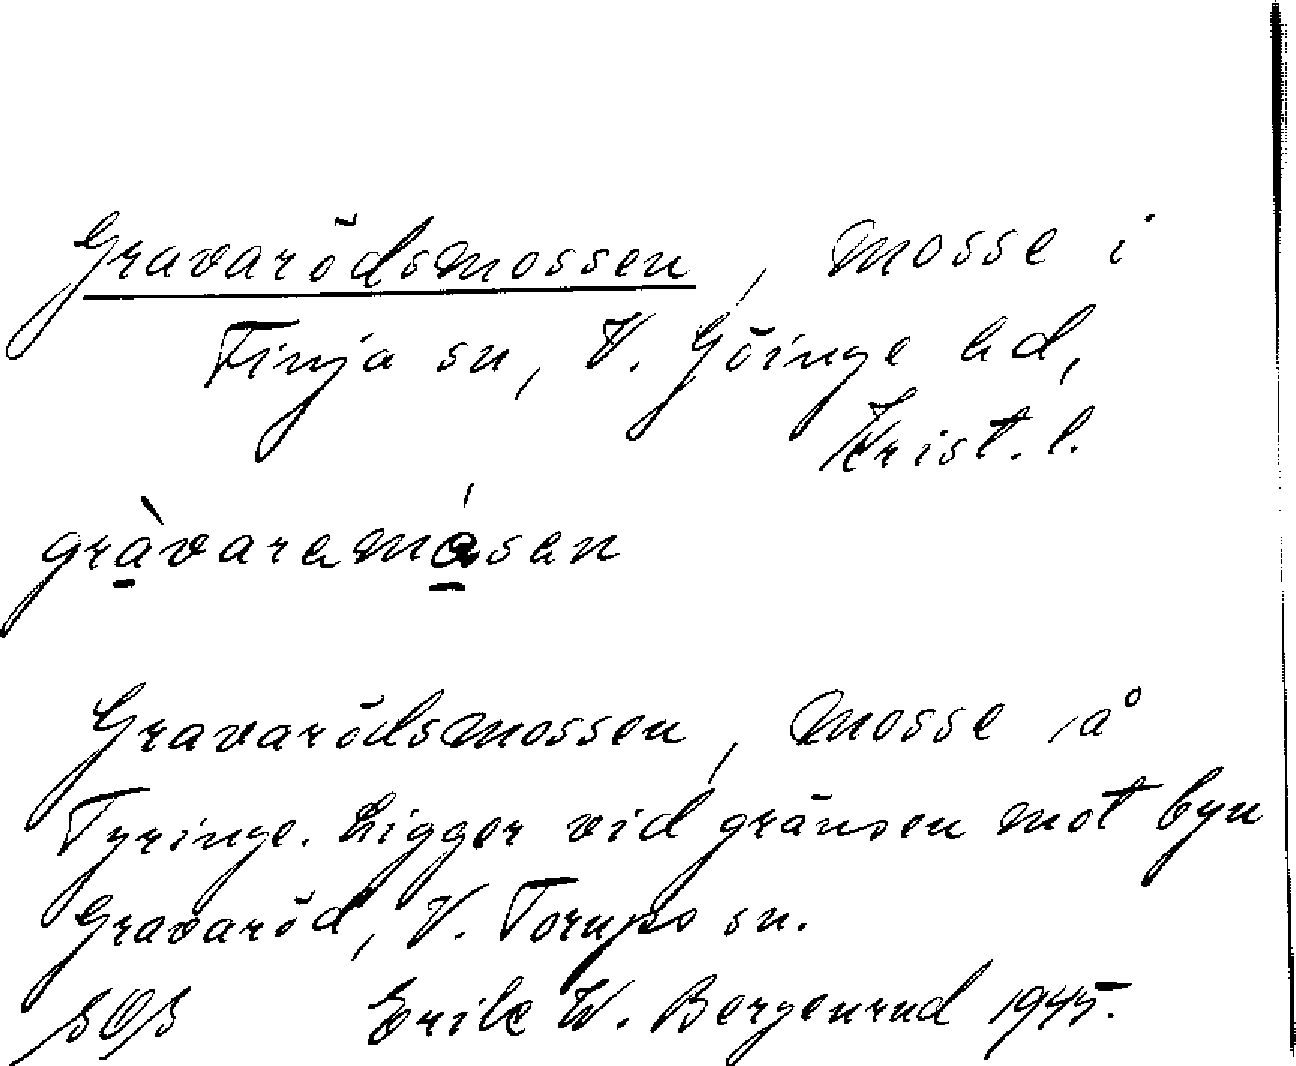 Gravarödsmossen, mosse i
Finja sn, V. Göinge hd,
Krist. l.
gràvaramásan
Gravarödsmossen, mosse å
Tyringe. Ligger vid gränsen mot byn
Gravaröd, V. Torups sn.
SOS Erik W. Bergenrud 1945.